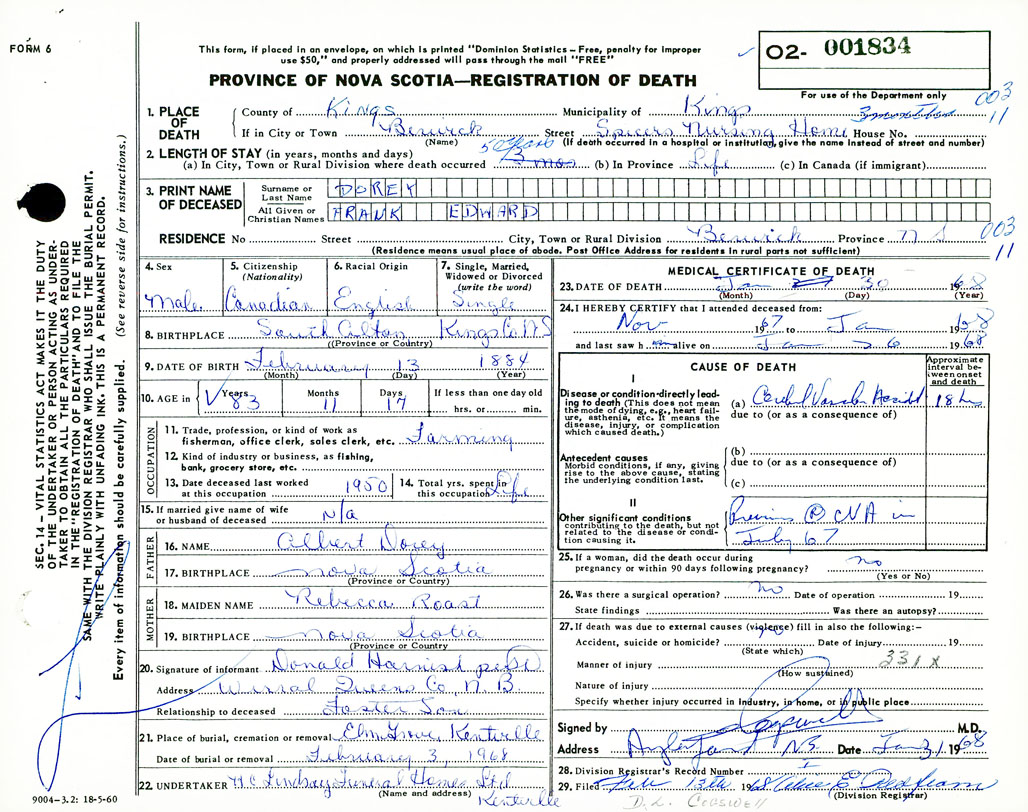 FORM 6
This form, if placed in an envelope, on which is printed "Dominion Statistics – Free, penalty for improper
use $50," and properly addressed will pass through the mail "FREE"
PROVINCE OF NOVA SCOTIA—REGISTRATION OF DEATH
O2- 001834
For use of the Department only
003
11
1. PLACE OF DEATH
County of Kings Municipality of Kings
If in City or Town Berwick Street Spicers Nursing Home House No.
(Name) (If death occurred in a hospital or institution, give the name instead of street and number)
2. LENGTH OF STAY (in years, months and days)
5 years
(a) In City, Town or Rural Division where death occurred 3 mos (b) In Province Life (c) In Canada (if immigrant)
3. PRINT NAME OF DECEASED
Surname or Last Name DOREY
All Given or Christian Names FRANK EDWARD
RESIDENCE No Street City, Town or Rural Division Berwick Province N S
003
11
(Residence means usual place of abode. Post Office Address for residents in rural parts not sufficient)
4. Sex
Male
5. Citizenship
(Nationality)
Canadian
6. Racial Origin
English
7. Single, Married,
Widowed or Divorced
(write the word)
Single
8. BIRTHPLACE South Alton Kings Co N S
(Province or Country)
9. DATE OF BIRTH February 13 1884
(Month) (Day) (Year)
10. AGE in Years 83 Months 11 Days 17 If less than one day old
hrs. or min.
OCCUPATION
11. Trade, profession, or kind of work as
fisherman, office clerk, sales clerk, etc. Farming
12. Kind of industry or business, as fishing,
bank, grocery store, etc.
13. Date deceased last worked
at this occupation 1950
14. Total yrs. spent in
this occupation Life
15. If married give name of wife
or husband of deceased N/a
FATHER
16. NAME Albert Dorey
17. BIRTHPLACE Nova Scotia
(Province or Country)
MOTHER
18. MAIDEN NAME Rebecca Roast
19. BIRTHPLACE Nova Scotia
(Province or Country)
20. Signature of informant Donald Harnish
Address Wirral Queens Co, N.B.
Relationship to deceased Foster Son
21. Place of burial, cremation or removal Elm Grove, Kentville
Date of burial or removal February 3, 1968
22. UNDERTAKER H C Lindsay Funeral Homes Ltd
(Name and address) Kentville
9004—3.2: 18-5-60
MEDICAL CERTIFICATE OF DEATH
23. DATE OF DEATH Jan 30 1968
(Month) (Day) (Year)
24. I HEREBY CERTIFY that I attended deceased from:
Nov 1967 to Jan 1968
and last saw him alive on Jan 26 1968
CAUSE OF DEATH
Approximate
interval be-
tween onset
and death
I
Disease or condition directly lead-
ing to death (This does not mean
the mode of dying, e.g., heart fail-
ure, asthenia, etc. It means the
disease, injury, or complication
which caused death.)
(a) Cerebral Vascular Accident 18 hrs
due to (or as a consequence of)
Antecedent causes
Morbid conditions, if any, giving
rise to the above cause, stating
the underlying condition last.
(b)
due to (or as a consequence of)
(c)
II
Other significant conditions
contributing to the death, but not
related to the disease or condi-
tion causing it.
Previous CVA in
July 67
25. If a woman, did the death occur during
pregnancy or within 90 days following pregnancy? no
(Yes or No)
26. Was there a surgical operation? no Date of operation 19
State findings Was there an autopsy?
27. If death was due to external causes (violence) fill in also the following:—
no
Accident, suicide or homicide? Date of injury 19
(State which)
331 X
Manner of injury
(How sustained)
Nature of injury
Specify whether injury occurred in Industry, in home, or in public place
Signed by M.D.
Address N.S. Date Jan 31 1968
28. Division Registrar's Record Number 1
29. Filed Feb 13th 1968
(Division Registrar)
D.L. COGSWELL
SEC. 14 – VITAL STATISTICS ACT MAKES IT THE DUTY
OF THE UNDERTAKER OR PERSON ACTING AS UNDER-
TAKER TO OBTAIN ALL THE PARTICULARS REQUIRED
IN THE "REGISTRATION OF DEATH" AND TO FILE THE
SAME WITH THE DIVISION REGISTRAR WHO SHALL ISSUE THE BURIAL PERMIT.
WRITE PLAINLY WITH UNFADING INK. THIS IS A PERMANENT RECORD.
Every item of information should be carefully supplied. (See reverse side for instructions.)